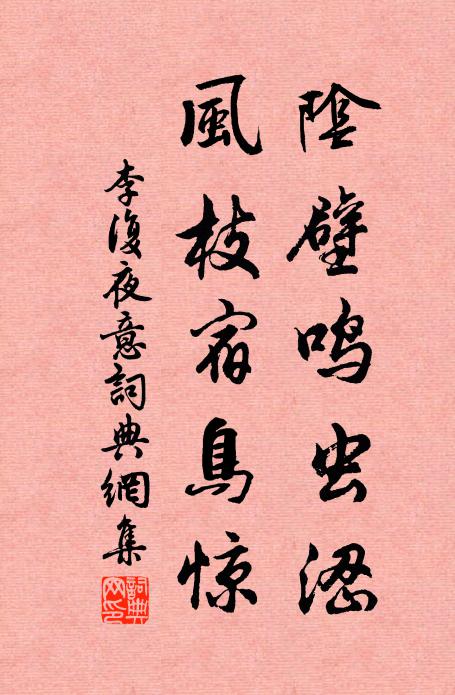 陰壁鳴虫澀
風枝宿鳥惊
李復夜意詞典網集
詞典
网印